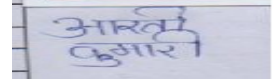 आरती
कुमारी